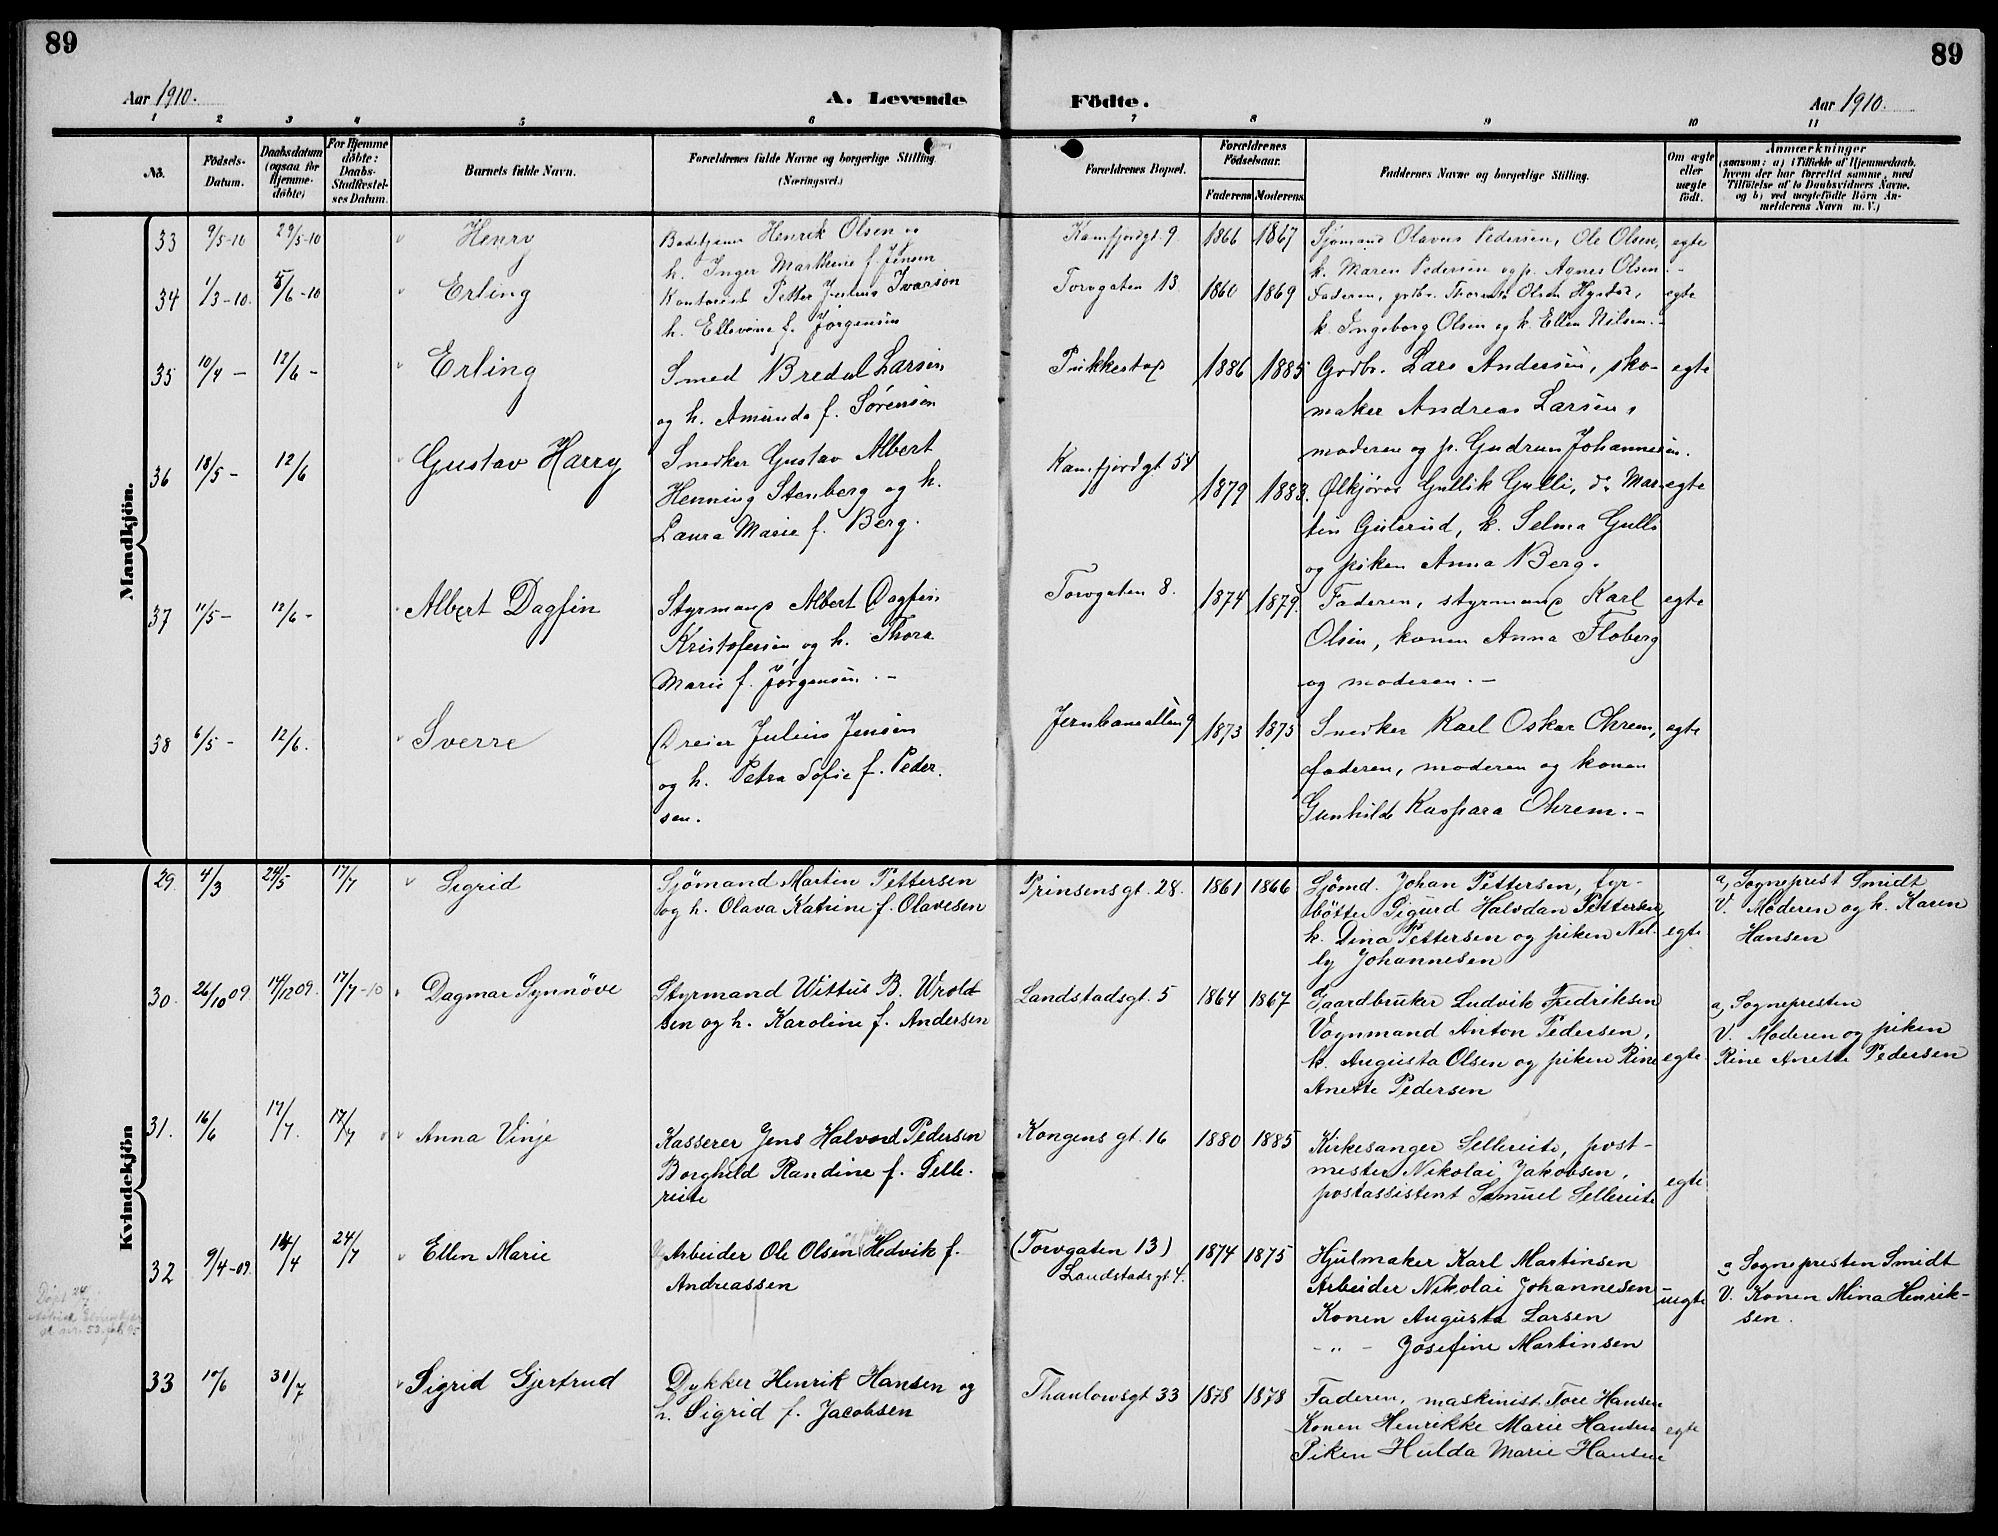 89
89
Aar 1910.
A. Levende
Födte.
Aar 1910.
1 2 3 4 5 6 7 8 9 10 11
No.
Födsels-
Datum.
Daabsdatum
(ogsaa for
Hjemme-
döbte)
For Hjemme
döbte:
Daabs-
Stadfæstel-
ses Datum.
Barnets fulde Navn.
Forældrenes fulde Navne og borgerlige Stilling
(Næringsvei.)
Forældrenes Bopæl.
Forældrenes
Födselsaar.
Faderens Moderens
Faddernes Navne og borgerlige Stilling.
Om ægte
eller
uægte
födt.
Anmærkninger
(saasom: a) i Tilfælde af Hjemmedaab,
hvem der har forrettet samme, med
Tilföielse af to Daabsvidners Navne,
og b) ved uægtefödte Börn An-
melderens Navn m. V.)
Mandkjön.
33 9/5-10 29/5-10 Henry Henrik Olsen og Kamfjordgt. 9. 1866 1867 Sjömand Olaves Pedersen, Ole Olsen, egte
h. Inger Marthine f. Jensen k. Maren Pedersen og p. Agnes Olsen.-
34 1/3-10. 5/6-10 Erling Kontorist Petter Julius Ivarson Torvgaten 13. 1860 1869 Faderen, grdbr. Olsen egte
h. Ellevine f. Jørgensen k. Ingeborg Olsen og k. Ellen Nilsen.-
35 10/4 - 12/6 - Erling Smed Bredal Larsen Pukkestad 1886 1885 Grdbr. Lars Andersen, sko- egte
og h. Amunda f. Sørensen maker Andreas Larsen,
moderen og p. Gudrun Johannesen.
36 18/5 - 12/6 Gustav Harry Snedker Gustav Albert Kamfjordgt 54 1879 1883. Ølkjører Gullik Gulli, do Mar- egte
Henning Stenberg og h. tin Gulerud, k. Selma Gulli
Laura Marie f. Berg. og piken Anna Berg.
37 11/5 - 12/6 - Albert Dagfin Styrmand Albert Dagfin Torvgaten 8. 1874 1879. Faderen, styrmand Karl egte
Kristofersen og h. Thora Olsen, konen Anna Floberg
Marie f. Jørgensen. - og moderen. -
38 6/5 - 12/6. Sverre Dreier Julius Jensen Jernbanealleen 9 1873 1875 Snedker Karl Oskar Ohrem, egte
og h. Petra Sofie f. Peder- faderen, moderen og konen
sen. Gunhild Kaspara Ohrem. -
Kvindekjön
29. 4/3 24/5 17/7 Sigrid Sjömand Martin Pettersen Prinsensgt. 28. 1861 1866 Sjömd. Johan Pettersen, fyr- a, Sogneprest Smidt
og h. Olava Katrine f. Olavesen bötter Sigurd Halvdan Pettersen, V. Moderen og h. Karen
k. Dina Pettersen og piken Nel- egte Hansen
ly Johannesen
30. 26/10 09. 14/12 09. 17/7-10 Dagmar Synnöve Styrmand Wittus B. Wrold- Landstadsgt. 5 1864 1867 Gaardbruker Ludvik Fredriksen a, Sognepresten
sen og h. Karoline f. Andersen Vognmand Anton Pedersen, V. Moderen og piken
k. Augusta Olsen og piken Rine egte Rine Anette Pedersen
Anette Pedersen
31. 16/6 17/7. 17/7 Anna Vinje Kasserer Jens Halvord Pedersen Kongens gt. 16 1880 1885 Kirkesanger Sellereite, post-
Borghild Randine f. Selle- mester Nikolai Jakobsen, egte
reite postassistent Samuel Sellereite
32 9/4-09. 14/4 24/7 Ellen Marie Arbeider Ole Olsen Hedvik f. (Torvgaten 13) 1874 1875 Hjulmaker Karl Martinsen a Sognepresten Smidt
Andreassen Landstadsgt 4. Arbeider Nikolai Johannesen uegte V. Konen Mina Henrik-
Konen Augusta Larsen sen.
- " - Josefine Martinsen
33 10/6 31/7 Sigrid Gjertrud Dykker Henrik Hansen og Thaulowsgt 33 1878 1878 Faderen, maskinist Tore Hansen
h. Sigrid f. Jacobsen Konen Henrikke Marie Hansen egte
Piken Hulda Marie Hansen